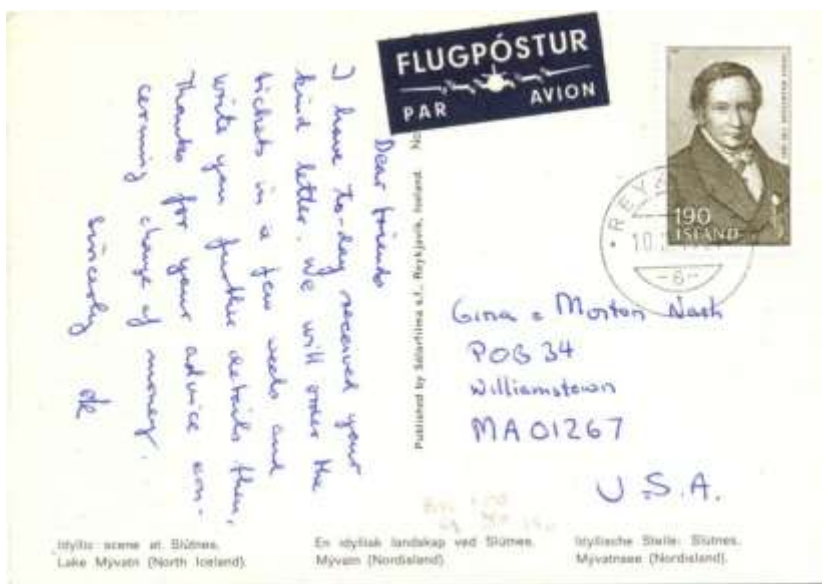 FLUGPÓSTUR
PAR AVION
190
ÍSLAND
REY
10.
-6-
Dear friends
I have to-day received your
kind letter. We will order the
tickets in a few weeks and
write you further details then,
Thanks for your advice con-
cerning change of money.
Sincerely
Published by Sólarfilma s.f., Reykjavik, Iceland.
Gina & Morton Nash
POB 34
Williamstown
MA 01267
U.S.A.
Idyllic scene at Slútnes.
Lake Mývatn (North Iceland).
En idyllisk landskap ved Slútnes.
Mývatn (Nordisland).
Idyllische Stelle: Slútnes.
Mývatnsee (Nordisland).